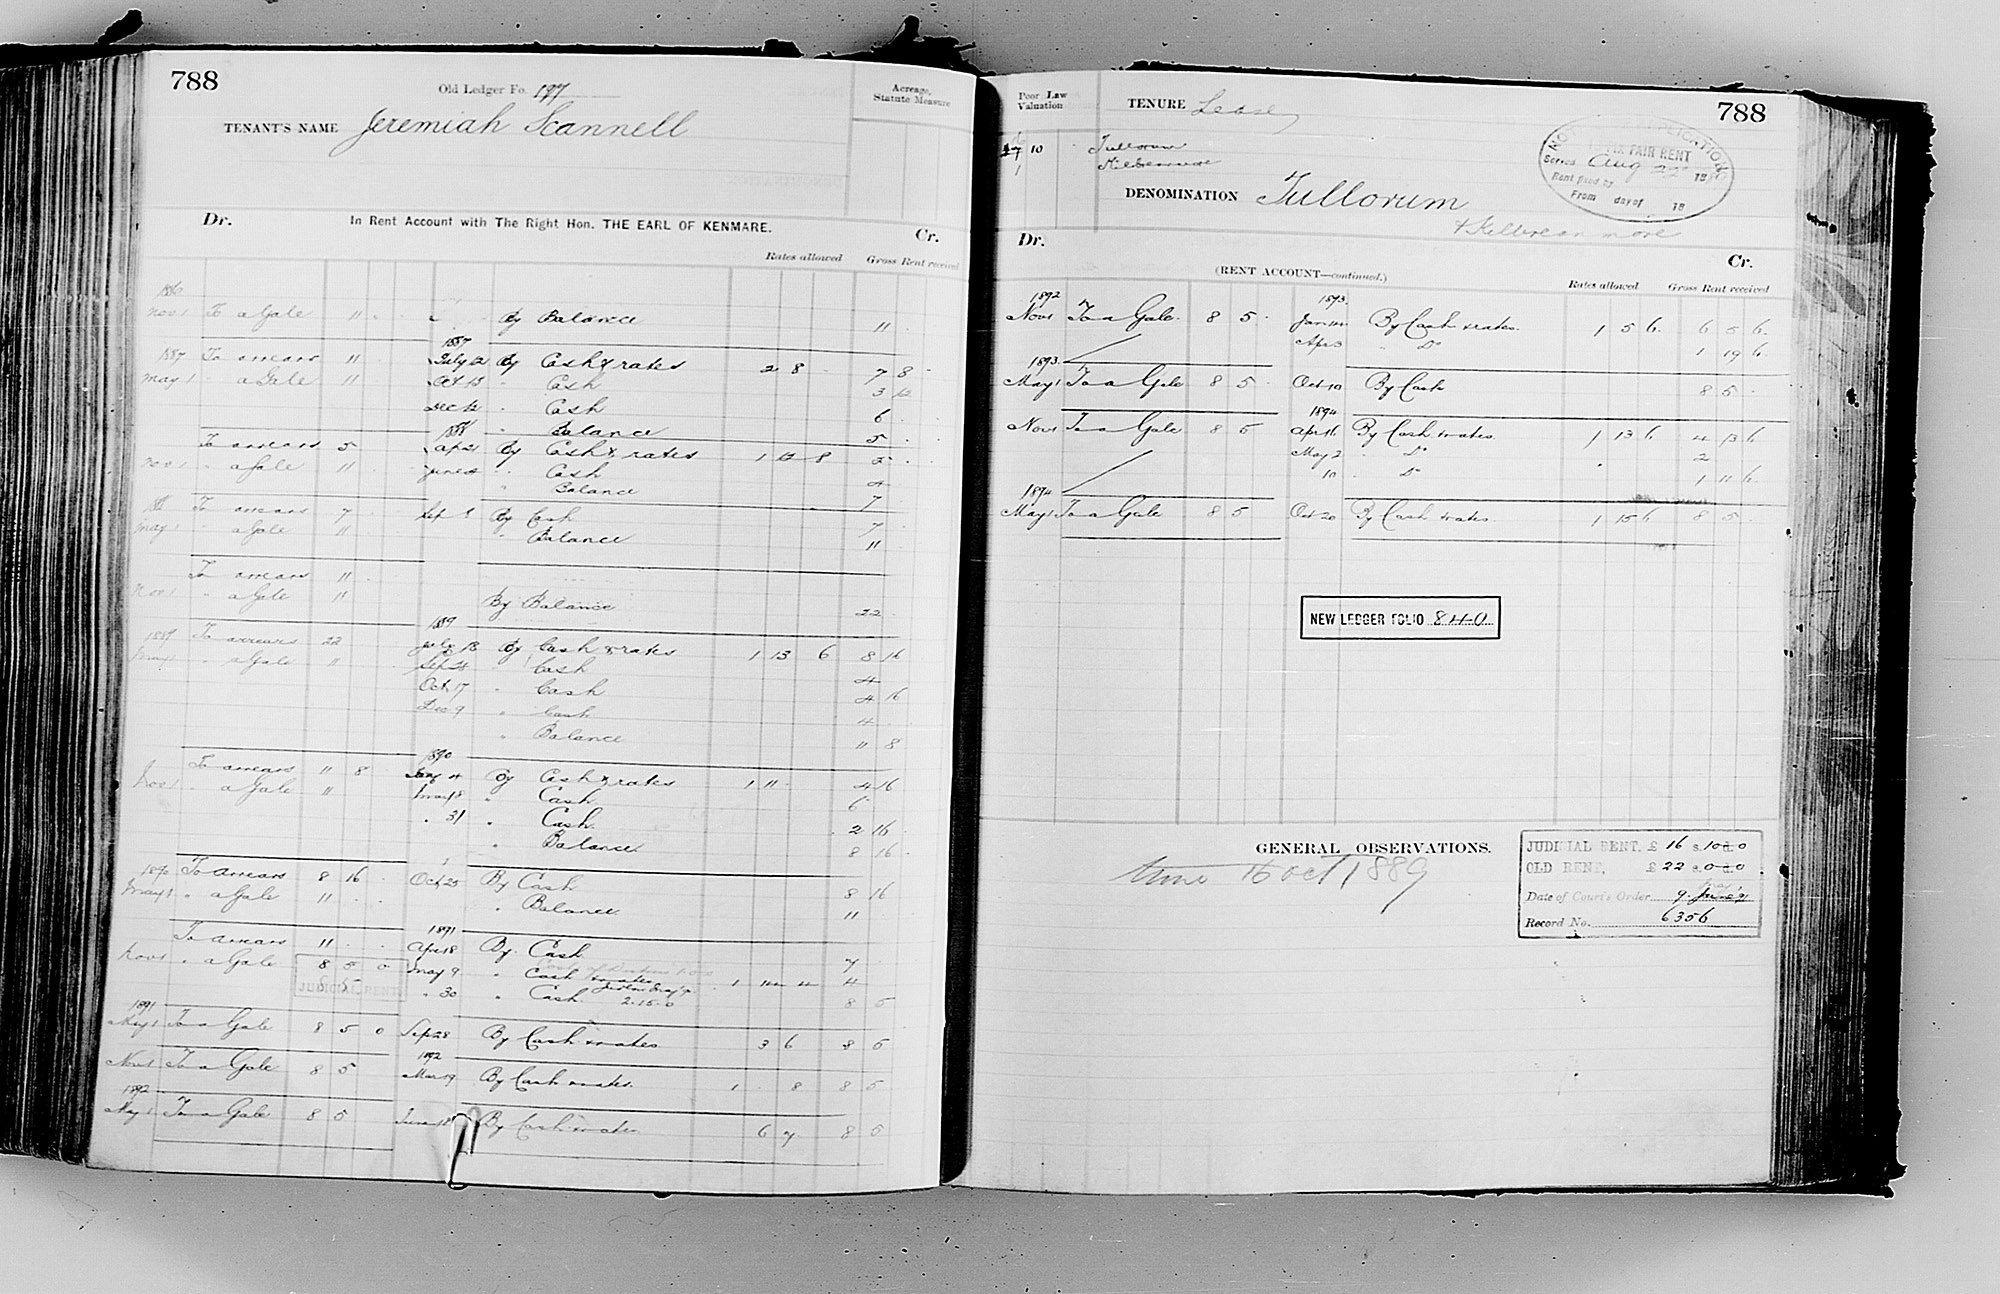 788
Old Ledger Fo. 197
Acreage, Statute Measure
TENANT'S NAME Jeremiah Scannell
Dr. In Rent Account with The Right Hon. THE EARL OF KENMARE. Cr.
Rates allowed Gross Rent received
1886
Nov 1 To a Gale 11 By Balance 11
1887
1887 To arrears 11 July 12 By Cash & rates 2 8 7 8
May 1 " a Gale 11 Oct 13 " Cash 3 12
Dec 12 " Cash 6
" Balance 5
1888
To arrears 5 Apr 21 By Cash & rates 1 12 8 5
Nov 1 " a Gale 11 June " Cash 4
" Balance 7
To arrears 7 Sep By Cash 7
May 1 " a Gale 11 " Balance 11
To arrears 11
Nov 1 " a Gale 11 By Balance 22
1889
1889 To arrears 22 July 13 By Cash & rates 1 13 6 8 16
May 1 " a Gale 11 Sep 24 " Cash 4
Oct 17 " Cash 4 16
Dec 9 " Cash 4
" Balance 11 8
1890
To arrears 11 8 By Cash & rates 1 11 4 16
Nov 1 " a Gale 11 May 8 " Cash 6
" 31 " Cash 2 16
" Balance 8 16
1890 To arrears 8 16 Oct 25 By Cash 8 16
May 1 " a Gale 11 " Balance 11
1891
To arrears 11 Apr 18 By Cash 7
Nov 1 " a Gale 8 5 0 May 9 " Cash & rates 1 14 4 4
JUDICIAL RENT " 30 " Cash 2.15.0 8 5
1891
May 1 To a Gale 8 5 0 Sep 28 By Cash & rates 3 6 8 5
1892
Nov 1 To a Gale 8 5 Mar 19 By Cash & rates 1 8 8 5
1892
May 1 To a Gale 8 5 June 18 By Cash & rates 6 7 8 5
Poor Law Valuation
TENURE Lease
788
17 10 Tullorum
1 Kilbreanmore
NOTICE APPLICATION TO FIX FAIR RENT
Served Aug 22 18
Rent fixed by
From day of 18
DENOMINATION Tullorum
+ Kilbrean more
Dr. Cr.
(RENT ACCOUNT—continued.)
Rates allowed Gross Rent received
1892 1893
Nov 1 To a Gale 8 5 Jan By Cash & rates 1 5 6 6 5 6
Apr 3 " Do 1 19 6
1893
May 1 To a Gale 8 5 Oct 10 By Cash 8 5
1894
Nov 1 To a Gale 8 5 Apr 16 By Cash & rates 1 13 6 4 13 6
May 2 " Do 2
10 " Do 1 11 6
1894
May 1 To a Gale 8 5 Oct 20 By Cash & rates 1 15 6 8 5
NEW LEDGER FOLIO 840
GENERAL OBSERVATIONS.
16 Oct 1889
JUDICIAL RENT. £ 16 s. 10 d. 0
OLD RENT, £ 22 s. 0 d. 0
Date of Court's Order 9 June 91
Record No. 6356